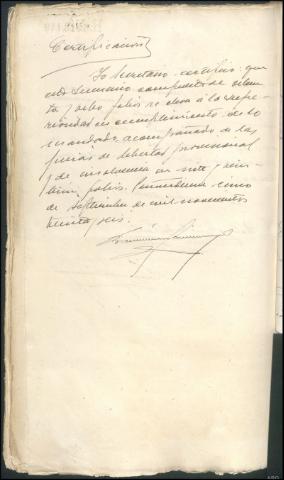 Certificación
Yo Secretario certifico: que
este sumario compuesto de ochen-
ta y ocho folios se eleva a la supe-
rioridad en cumplimiento de lo
acordado, acompañado de las
piezas de libertad provisional
y de insolvencia en siete y vein-
tiun folios. Ponteved cinco
de septiembre de mil novecientos
treinta y seis.